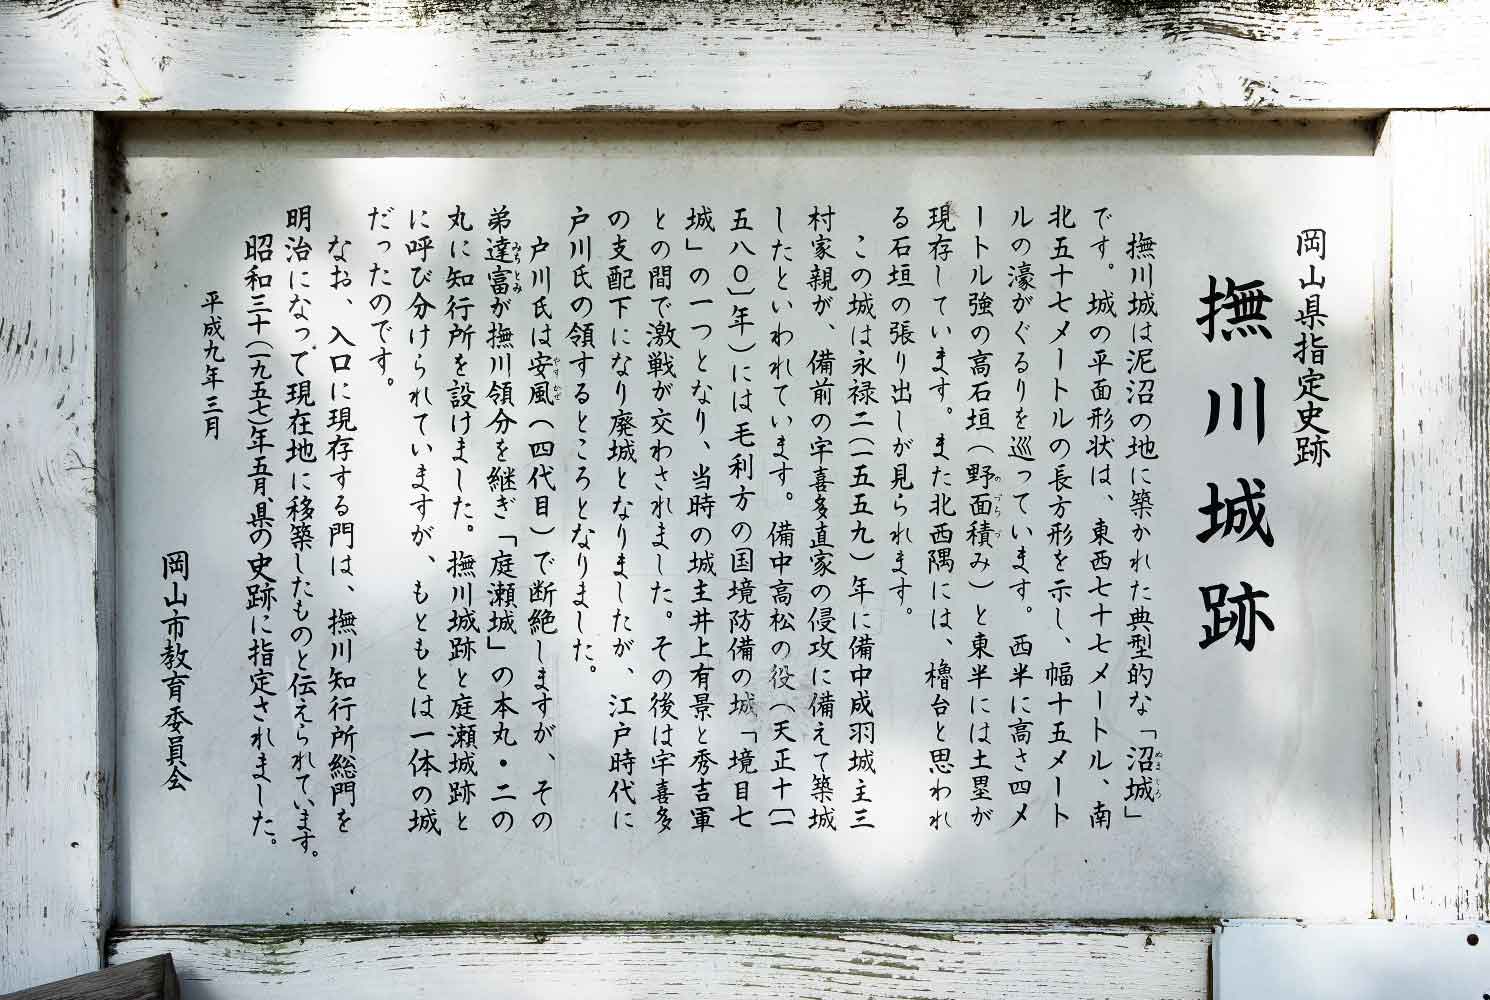 岡山県指定史跡
撫川城跡
撫川城は泥沼の地に築かれた典型的な「沼城」
ぬまじろ
です。城の平面形状は、東西七十七メートル、南
北五十七メートルの長方形を示し、幅十五メート
ルの濠がぐるりを巡っています。西半に高さ四メ
ートル強の高石垣(野面積み)と東半には土塁が
のづらづ
現存しています。また北西隅には、櫓台と思われ
る石垣の張り出しが見られます。
この城は永禄二(一五五九)年に備中成羽城主三
村家親が、備前の宇喜多直家の侵攻に備えて築城
したといわれています。備中高松の役(天正十〔一
五八〇〕年)には毛利方の国境防備の城「境目七
城」の一つとなり、当時の城主井上有景と秀吉軍
との間で激戦が交わされました。その後は宇喜多
の支配下になり廃城となりましたが、江戸時代に
戸川氏の領するところとなりました。
戸川氏は安風(四代目)で断絶しますが、その
やすかぜ
弟達富が撫川領分を継ぎ「庭瀬城」の本丸・二の
みちとみ
丸に知行所を設けました。撫川城跡と庭瀬城跡と
に呼び分けられていますが、もともとは一体の城
だったのです。
なお、入口に現存する門は、撫川知行所総門を
明治になって現在地に移築したものと伝えられています。
昭和三十(一九五七)年五月、県の史跡に指定されました。
平成九年三月
岡山市教育委員会